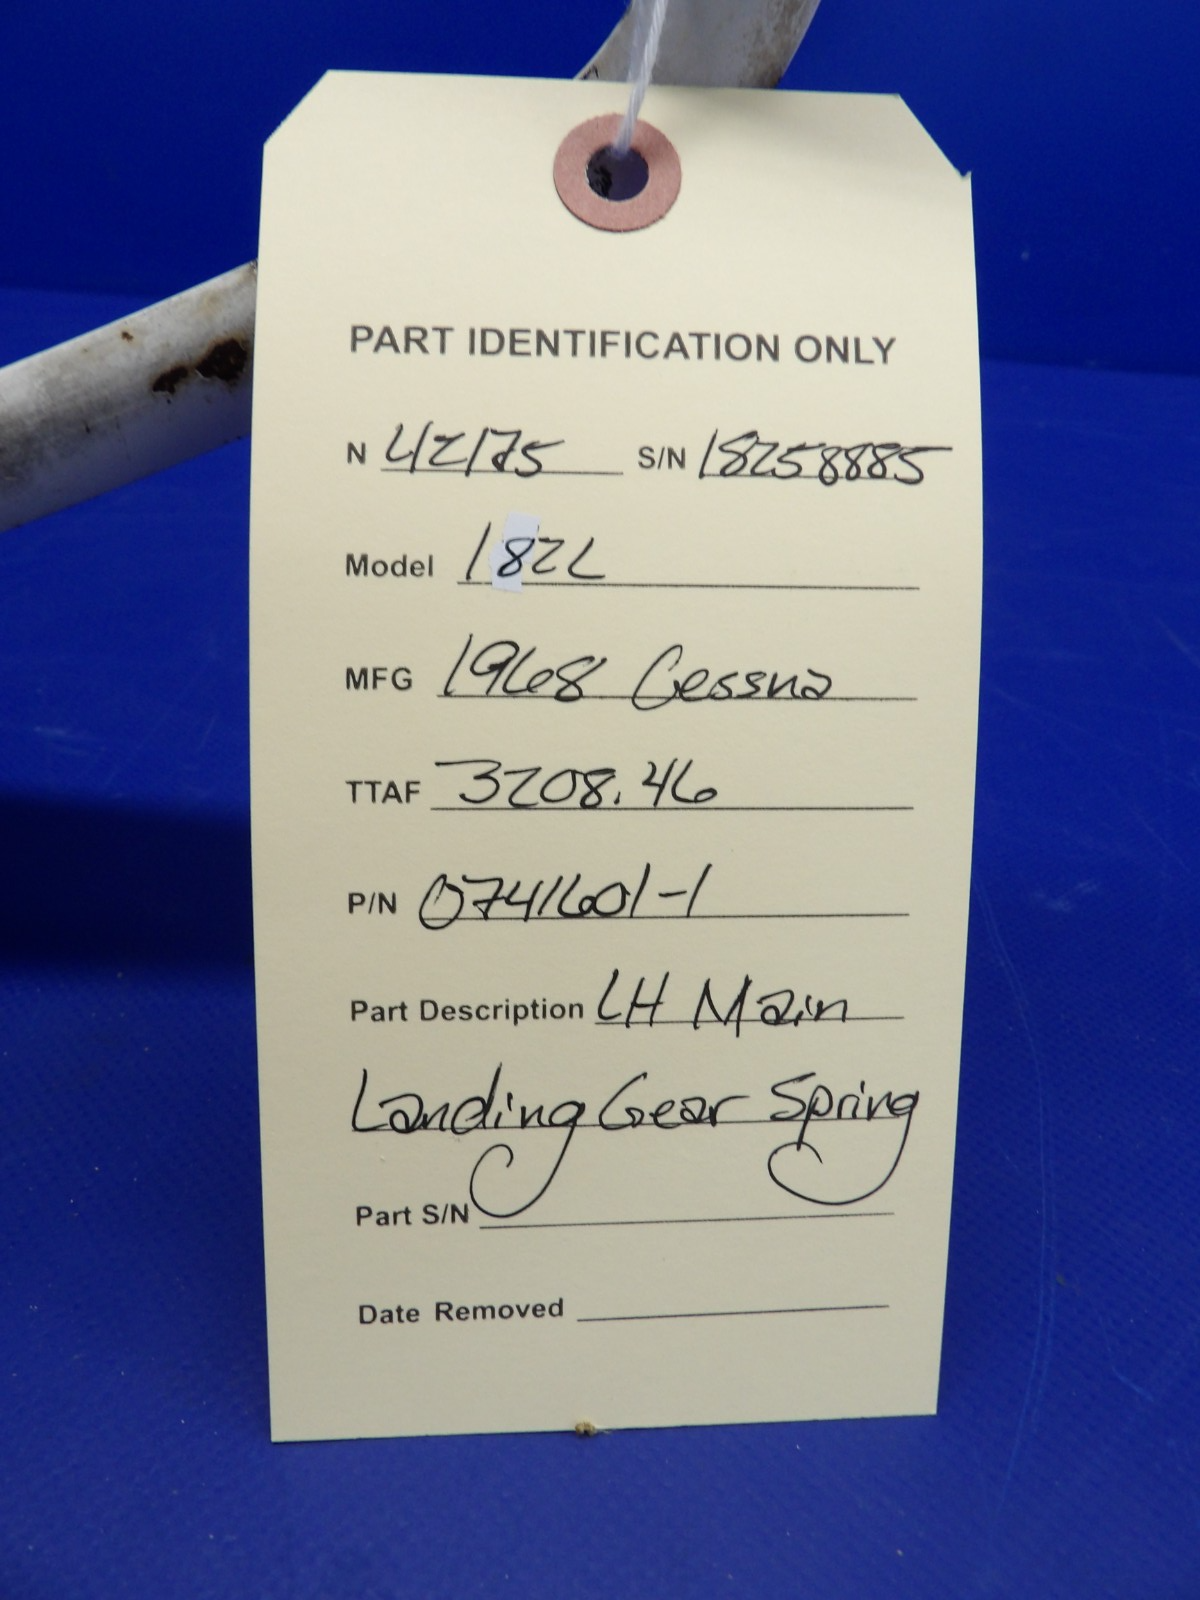 PART IDENTIFICATION ONLY
N 42175 S/N 18258885
Model 182L
MFG 1968 Cessna
TTAF 3208.46
P/N 0741601-1
Part Description LH Main
Landing Gear Spring
Part S/N
Date Removed